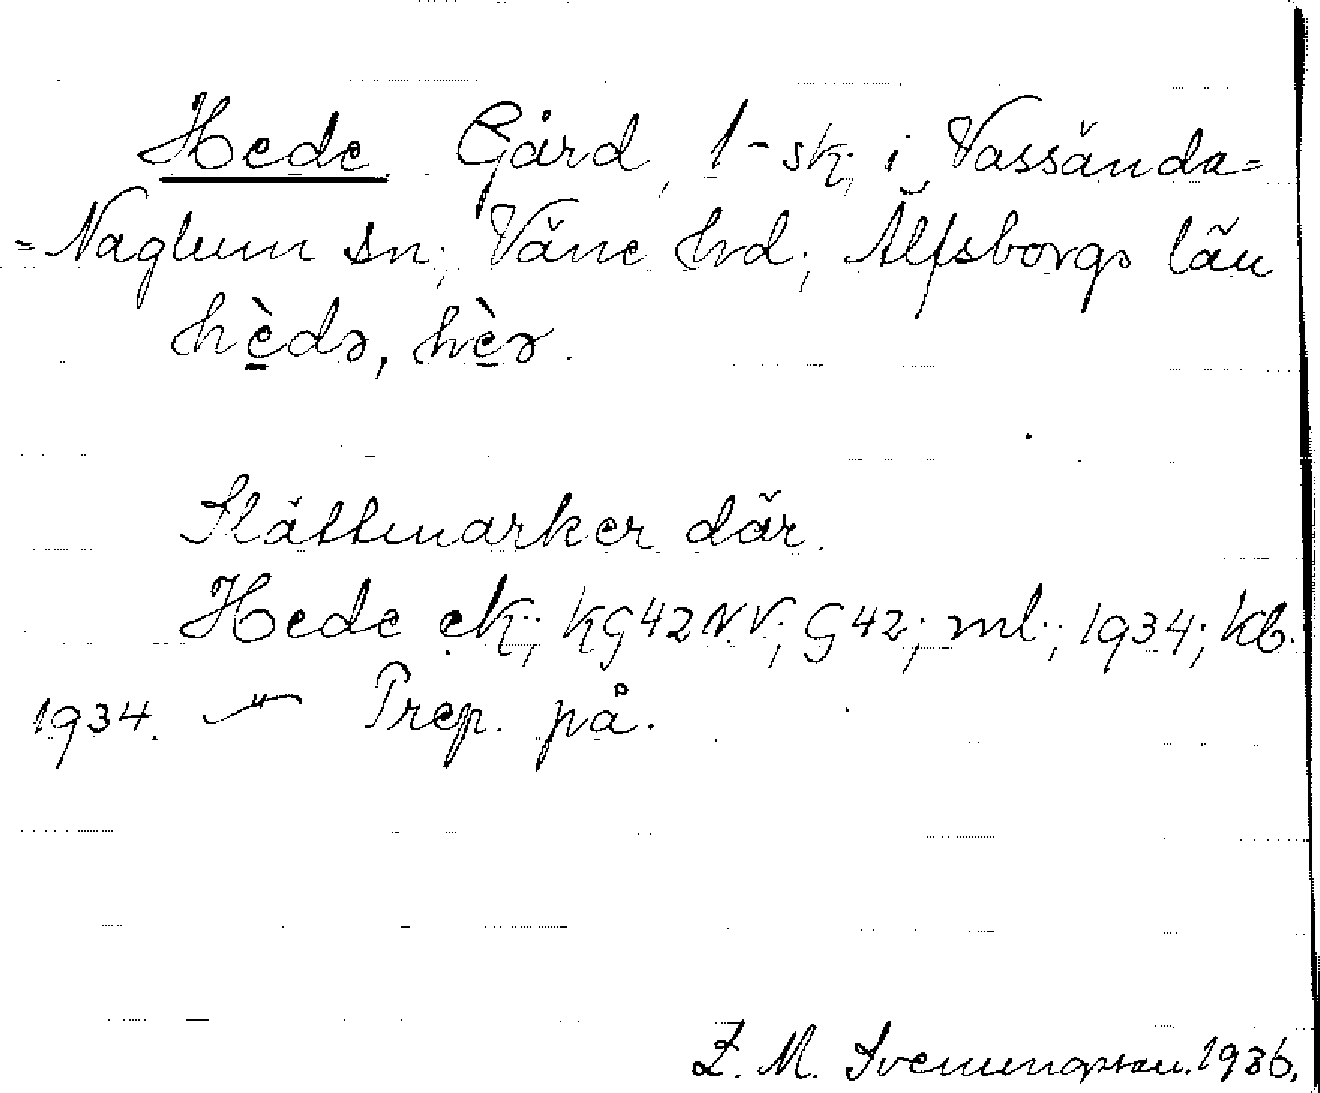 Hede Gård, 1-sk; i Vassända-
-Naglum sn; Väne hd; Älfsborgs län
hèdə, hèə.
Slåttmarker där.
Hede ek; KG42NV; G42; ml; 1934; kb.
1934. — Prep. på.
Z. M. Svenungsson. 1936.